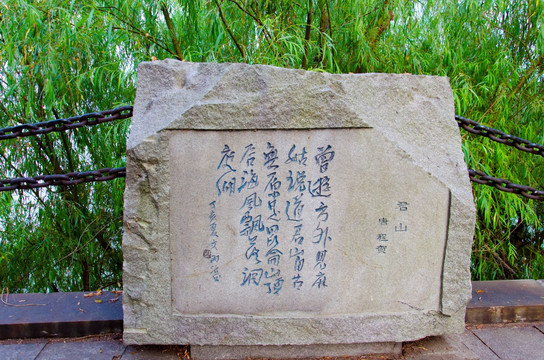 君山
唐程賀
曾遊方外見麻
姑說道君山自古
無原是崑崙山頂
石海風飄落洞
庭湖
丁亥夏